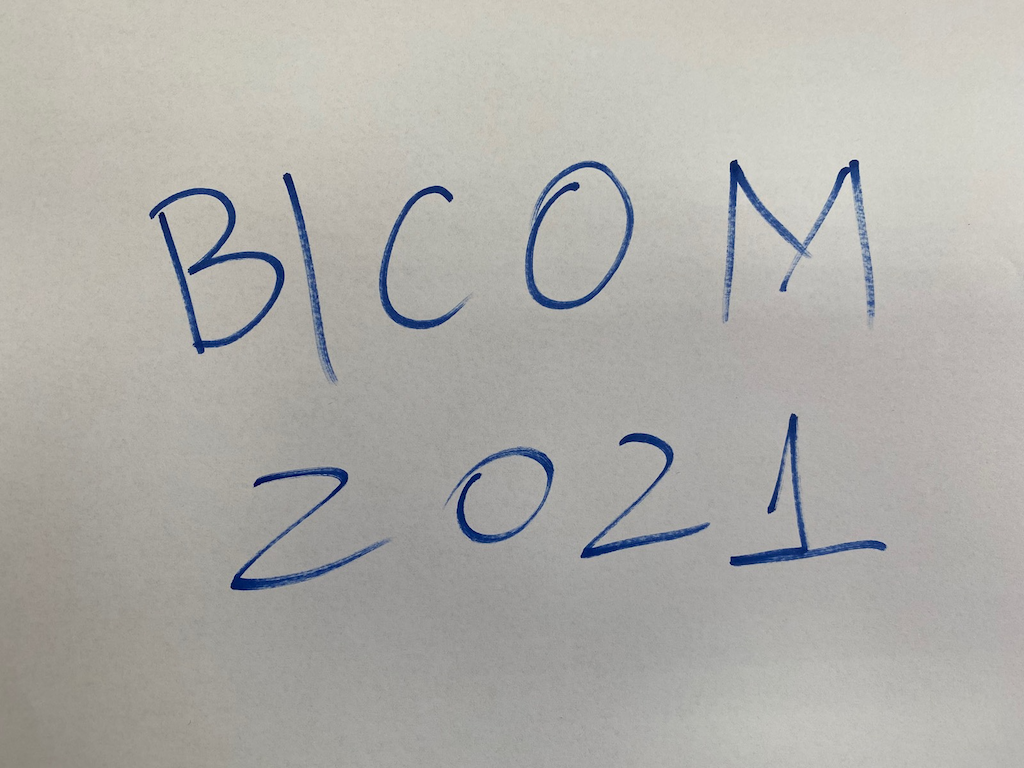 BICOM
2021